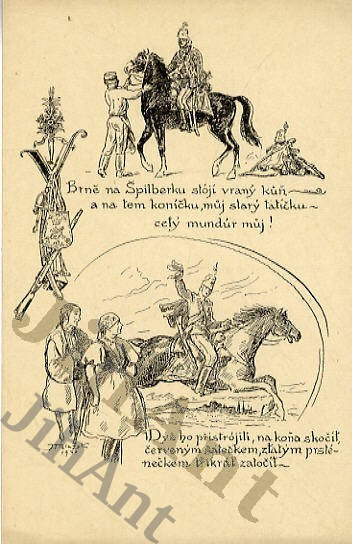 Brně na Špilberku stójí vraný kůň
a na tem koníčku, můj starý tatíčku
celý mundúr můj!
Dyž ho přistrójili, na koňa skočil,
červeným šátečkem, zlatým prstē-
nečkem třikrát zatočil
JiriAnt
JiriAnt